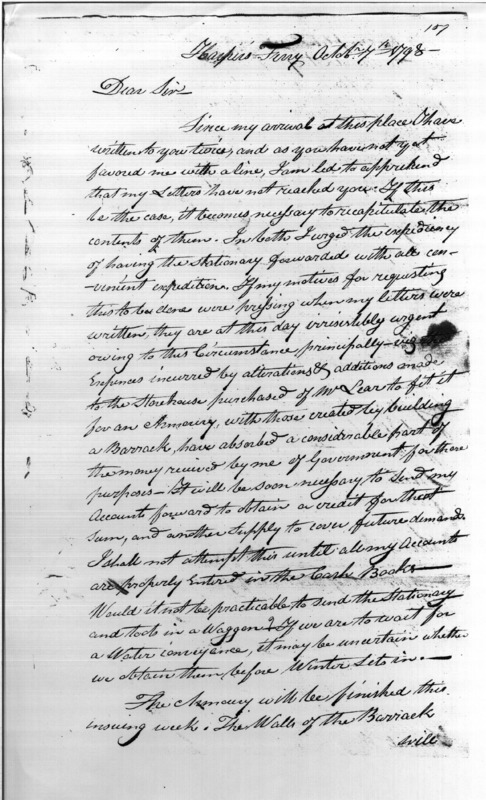 157
Harper's Ferry Octobr. 7th. 1798—
Dear Sir
Since my arrival at this place I have
written to you twice, and as you have not yet
favored me with a line, I am led to apprehend
that my Letters have not reached you. If this
be the case, it becomes necessary to recapitulate the
contents of them. In both I urged the expediency
of having the Stationary forwarded with all con-
venient expedition. If my motives for requesting
this to be done were pressing when my letters were
written, they are at this day irresistibly urgent
owing to this Circumstance principally—
Expences incurred by alterations & additions made
to the Storehouse purchased of Mr Lear to fit it
for an Armoury, with those created by building
a Barrack, have absorbed a considerable part of
the money received by me of Government for those
purposes— It will be soon necessary to send my
Accounts forward to obtain a credit for that
sum, and another supply to cover future demands
I shall not attempt this until all my Accounts
are properly Entered in the Cash Book—
Would it not be practicable to send the Stationary
and tools in a Waggon? If we are to wait for
a Water conveyance, it may be uncertain whether
we obtain them before Winter Sets in.—
The Armoury will be finished the
insuing week. The Walls of the Barrack
will